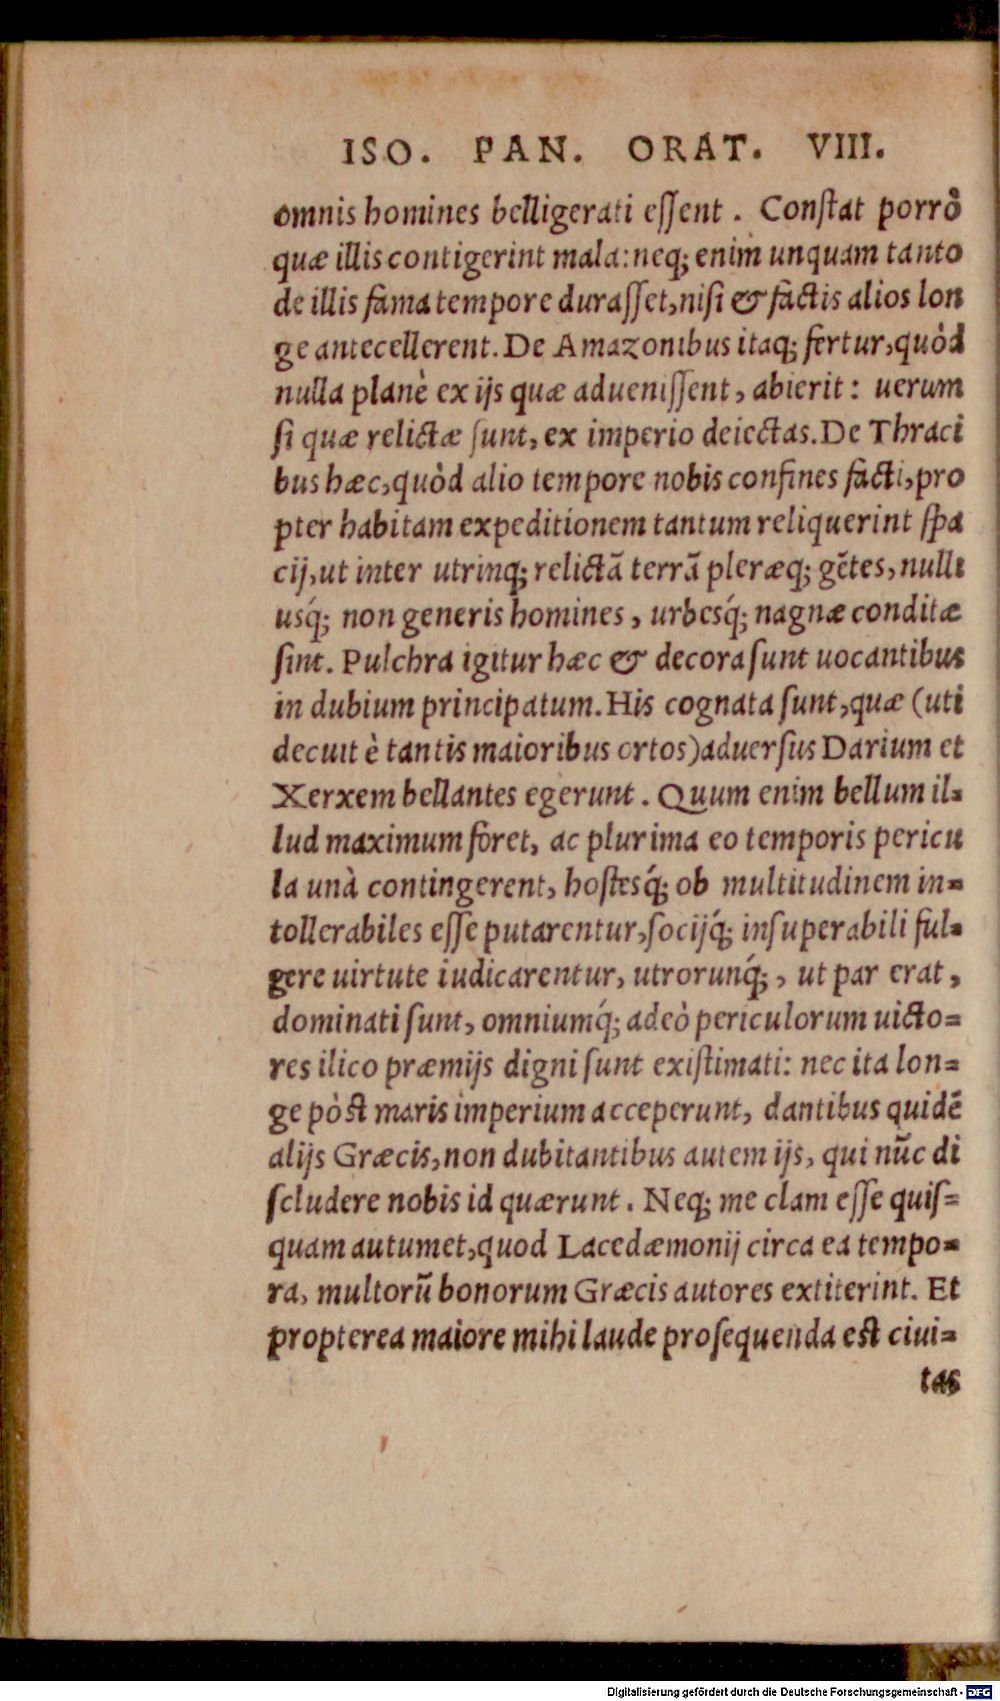 ISO. PAN. ORAT. VIII.
omnis homines belligerati eſſent . Conſtat porrò
quæ illis contigerint mala: neq; enim unquam tanto
de illis fama tempore duraſſet, niſi & factis alios lon
ge antecellerent. De Amazonibus itaq; fertur, quòd
nulla planè ex ijs quæ adueniſſent, abierit: uerum
ſi quæ relictæ ſunt, ex imperio deiectas. De Thraci
bus hæc, quòd alio tempore nobis confines facti, pro
pter habitam expeditionem tantum reliquerint ſpa
cij, ut inter utrinq; relictā terrā pleræq; gētes, nulli
uſq́; non generis homines, urbesq́; nagnæ conditæ
ſint. Pulchra igitur hæc & decora ſunt uocantibus
in dubium principatum. His cognata ſunt, quæ (uti
decuit è tantis maioribus ortos) aduerſus Darium et
Xerxem bellantes egerunt . Quum enim bellum il-
lud maximum foret, ac plurima eo temporis pericu
la unà contingerent, hoſtesq́; ob multitudinem in-
tollerabiles eſſe putarentur, ſocijq́; inſuperabili ful-
gere uirtute iudicarentur, utrorunq́;, ut par erat,
dominati ſunt, omniumq́; adeò periculorum uicto-
res ilico præmijs digni ſunt exiſtimati: nec ita lon-
ge pòst maris imperium acceperunt, dantibus quidē
alijs Græcis, non dubitantibus autem ijs, qui nūc di
ſcludere nobis id quærunt . Neq; me clam eſſe quiſ-
quam autumet, quod Lacedæmonij circa ea tempo-
ra, multorū bonorum Græcis autores extiterint. Et
propterea maiore mihi laude proſequenda est ciui-
tas
Digitalisierung gefördert durch die Deutsche Forschungsgemeinschaft - DFG